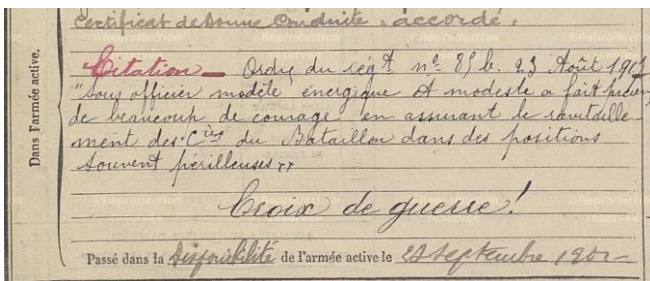 Certificat de Bonne Conduite, accordé.
Dans l'armée active.
Citation — Ordre du régt. nº 85 b. 23 Août 191
"Sous officier modèle énergique et modeste a fait preuve
de beaucoup de courage en assurant le ravitaille-
ment des Cies du Bataillon dans des positions
souvent périlleuses"
Croix de guerre!
Passé dans la disponibilité de l'armée active le Septembre 190